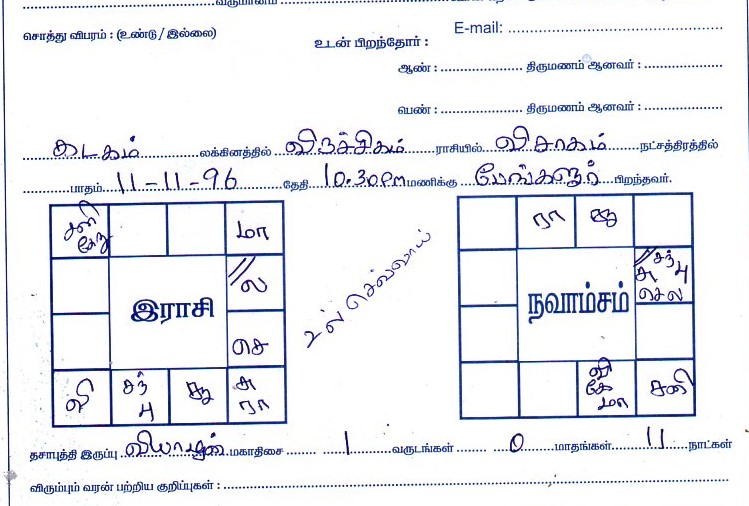 சொத்து விபரம் : (உண்டு / இல்லை)
உடன் பிறந்தோர் :
E-mail:
ஆண் : திருமணம் ஆனவர் :
பெண் : திருமணம் ஆனவர் :
கடகம் லக்கினத்தில் விருச்சிகம் ராசியில் விசாகம் நட்சத்திரத்தில்
பாதம் 11-11-96 தேதி 10.30PM மணிக்கு பேங்களூர் பிறந்தவர்.
சனி கேது
மா
ல
இராசி
செ
வி
சந் பு
சூ
சு ரா
உ ல் செவ்வாய்
ரா
சூ
சந் சு பு
செ ல
நவாம்சம்
வி கே மா
சனி
தசாபுத்தி இருப்பு வியாழன் மகாதிசை 1 வருடங்கள் 0 மாதங்கள் 11 நாட்கள்
விரும்பும் வரன் பற்றிய குறிப்புகள் :